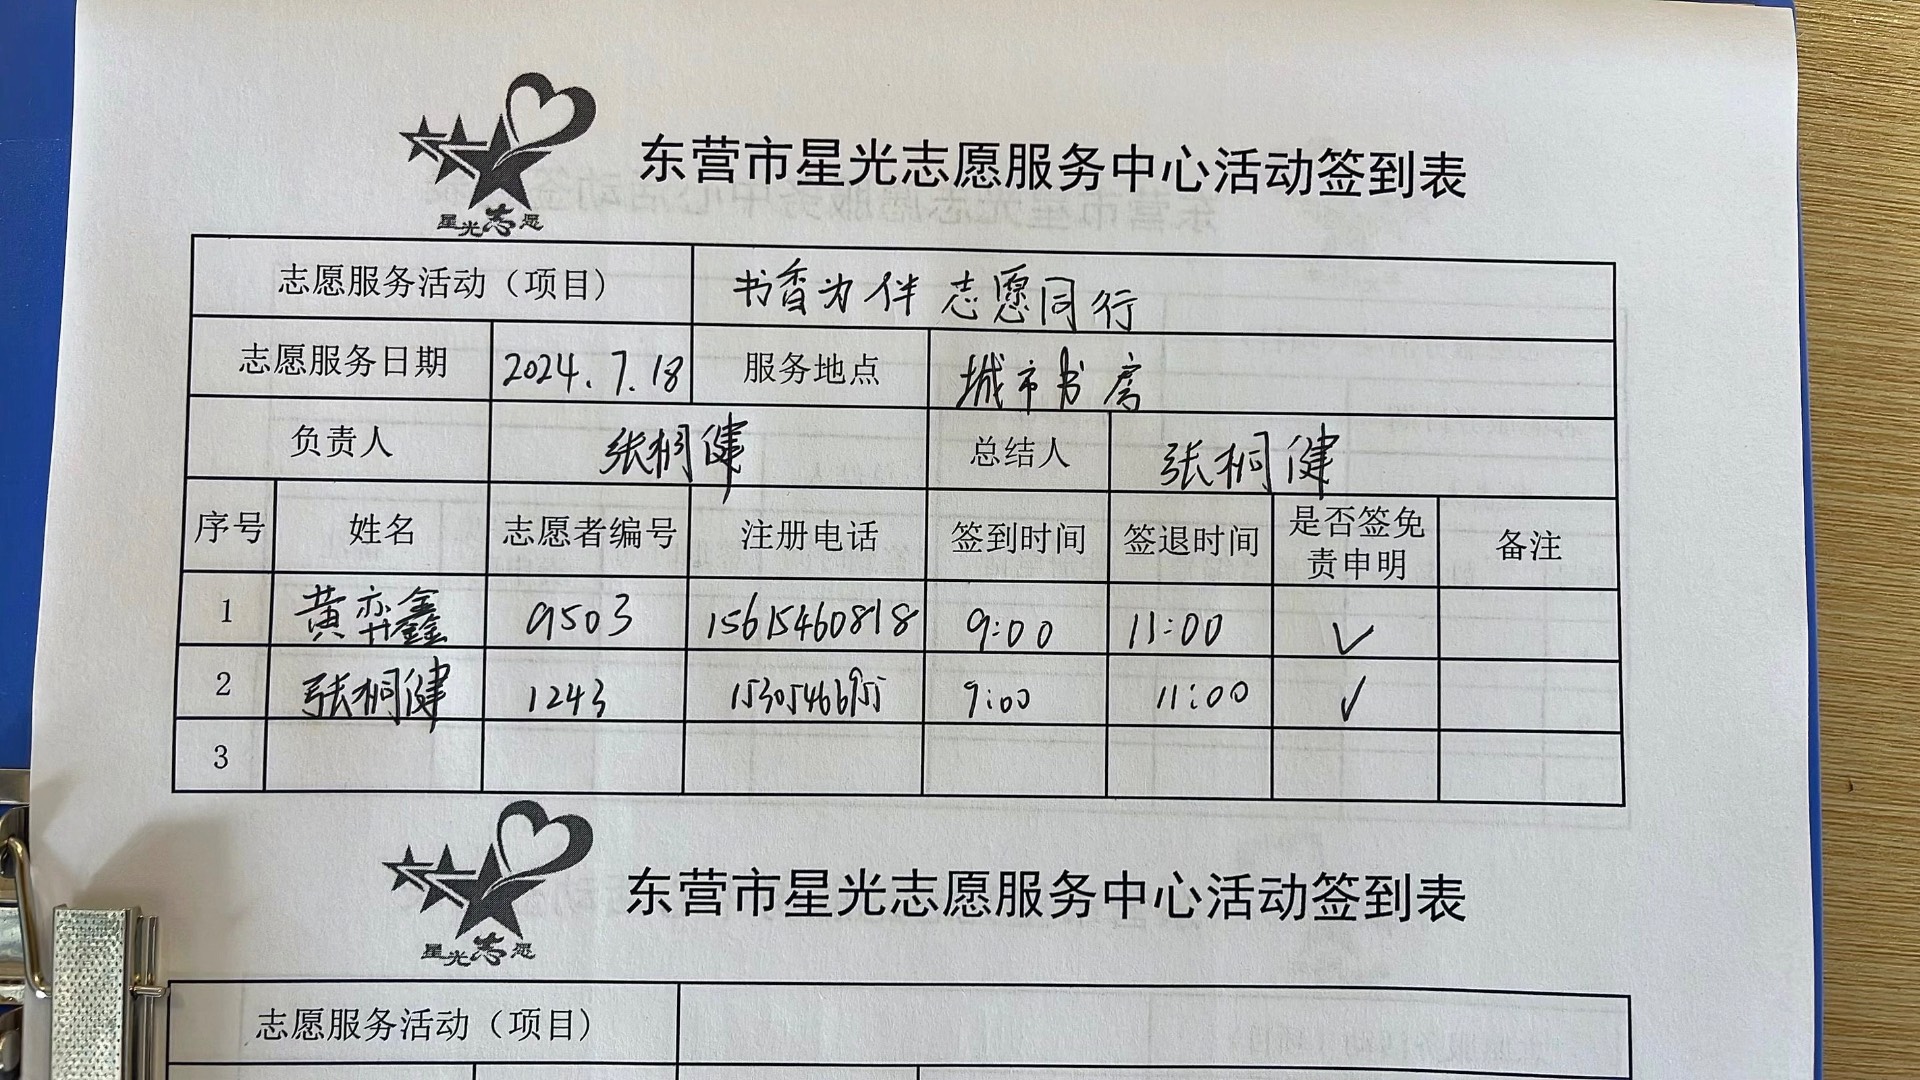 星光志愿
东营市星光志愿服务中心活动签到表
志愿服务活动（项目） 书香为伴 志愿同行
志愿服务日期 2024.7.18 服务地点 城市书房
负责人 张桐健 总结人 张桐健
序号 姓名 志愿者编号 注册电话 签到时间 签退时间 是否签免责申明 备注
1 黄弈鑫 9503 15615460818 9:00 11:00 ✓
2 张桐健 1243 15305466955 9:00 11:00 ✓
3
星光志愿
东营市星光志愿服务中心活动签到表
志愿服务活动（项目）